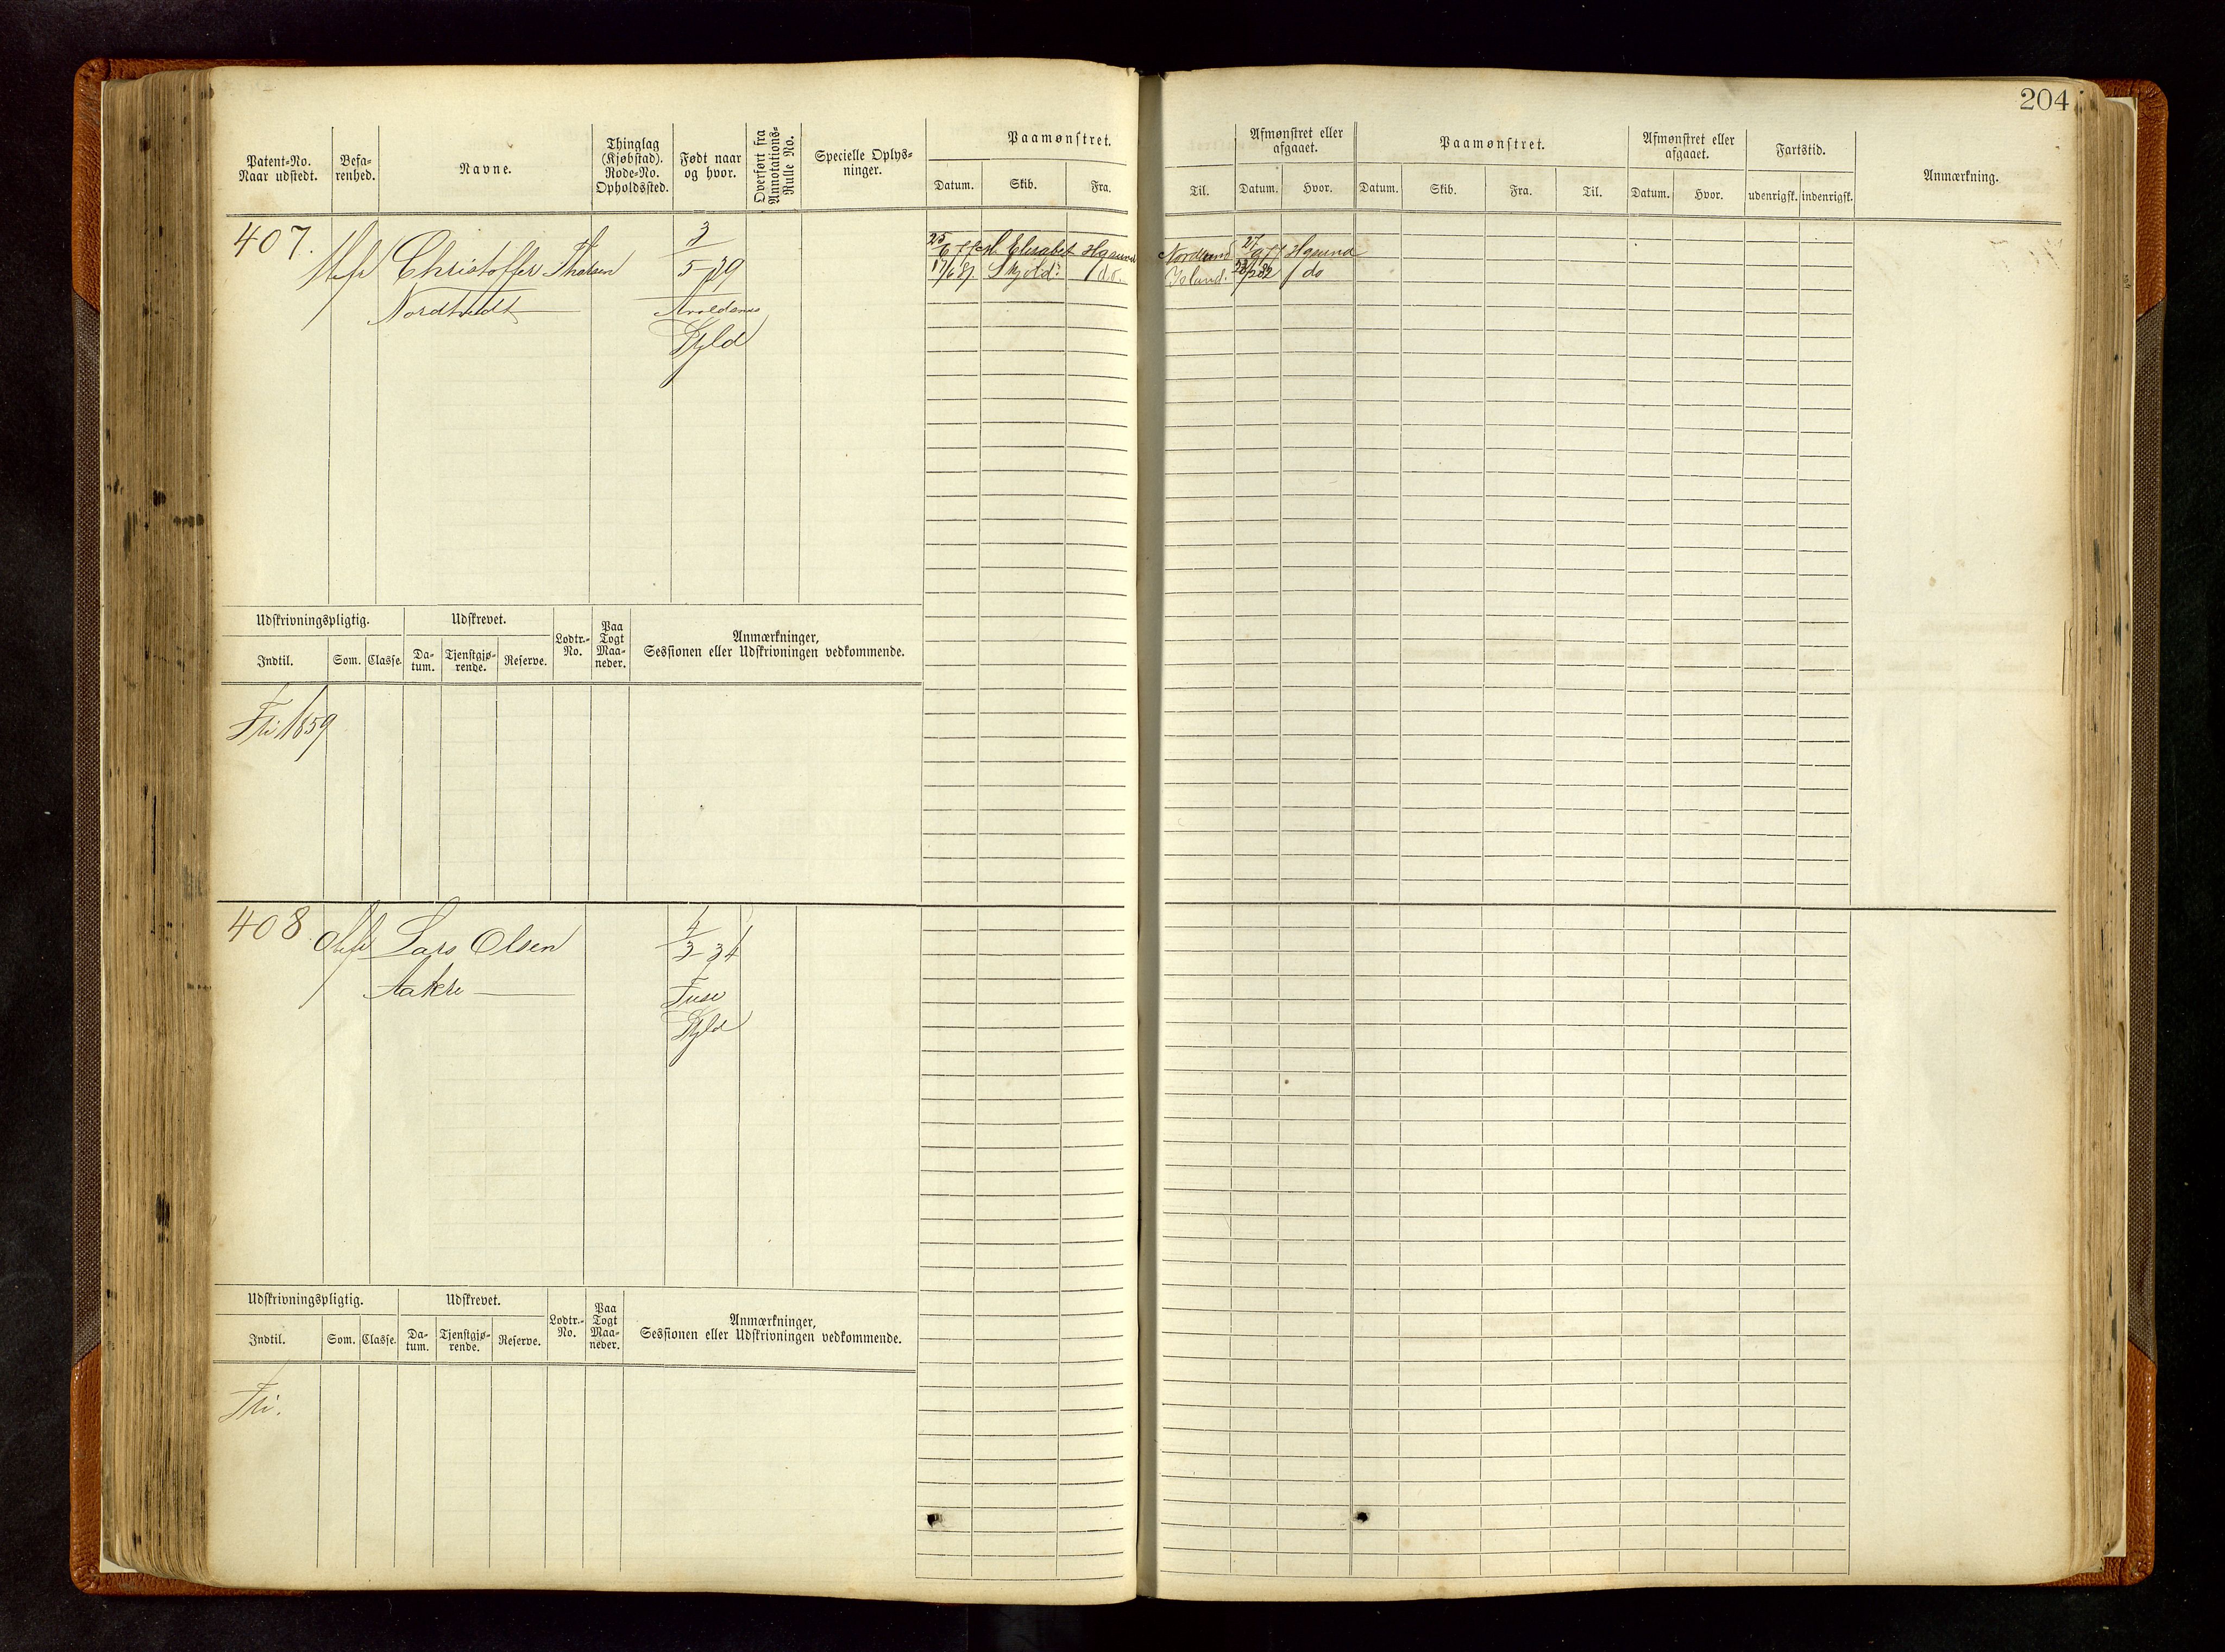 204
Patent-No.
Naar udstedt.
Befa-
renhed.
Navne.
Thinglag
(Kjøbstad).
Rode-No.
Opholdssted.
Født naar
og hvor.
Overført fra
Annotations-
Rulle No.
Specielle Oplys-
ninger.
Paamønstret.
Datum.
Skib.
Fra.
Til.
Afmønstret eller
afgaaet.
Datum.
Hvor.
Paamønstret.
Datum.
Skib.
Fra.
Til.
Afmønstret eller
afgaaet.
Datum.
Hvor.
Fartstid.
udenrigsk.
indenrigsk.
Anmærkning.
407.
Christoffer Tholsen
Nordtvedt
3
5 39
Skjold
25/6 77 Elisabet Hgsund Nordland 27/9 77 Hgsund
17/6 81 Skjold do. Island. do
Udskrivningspligtig.
Indtil.
Som.
Classe.
Udskrevet.
Da-
tum.
Tjenstgjø-
rende.
Reserve.
Lodtr.-
No.
Paa
Togt
Maa-
neder.
Anmærkninger,
Sessionen eller Udskrivningen vedkommende.
Fri 1859
408
Lars Olsen
Aakre
4
3 34
Skjold
Udskrivningspligtig.
Indtil.
Som.
Classe.
Udskrevet.
Da-
tum.
Tjenstgjø-
rende.
Reserve.
Lodtr.-
No.
Paa
Togt
Maa-
neder.
Anmærkninger,
Sessionen eller Udskrivningen vedkommende.
Fri.